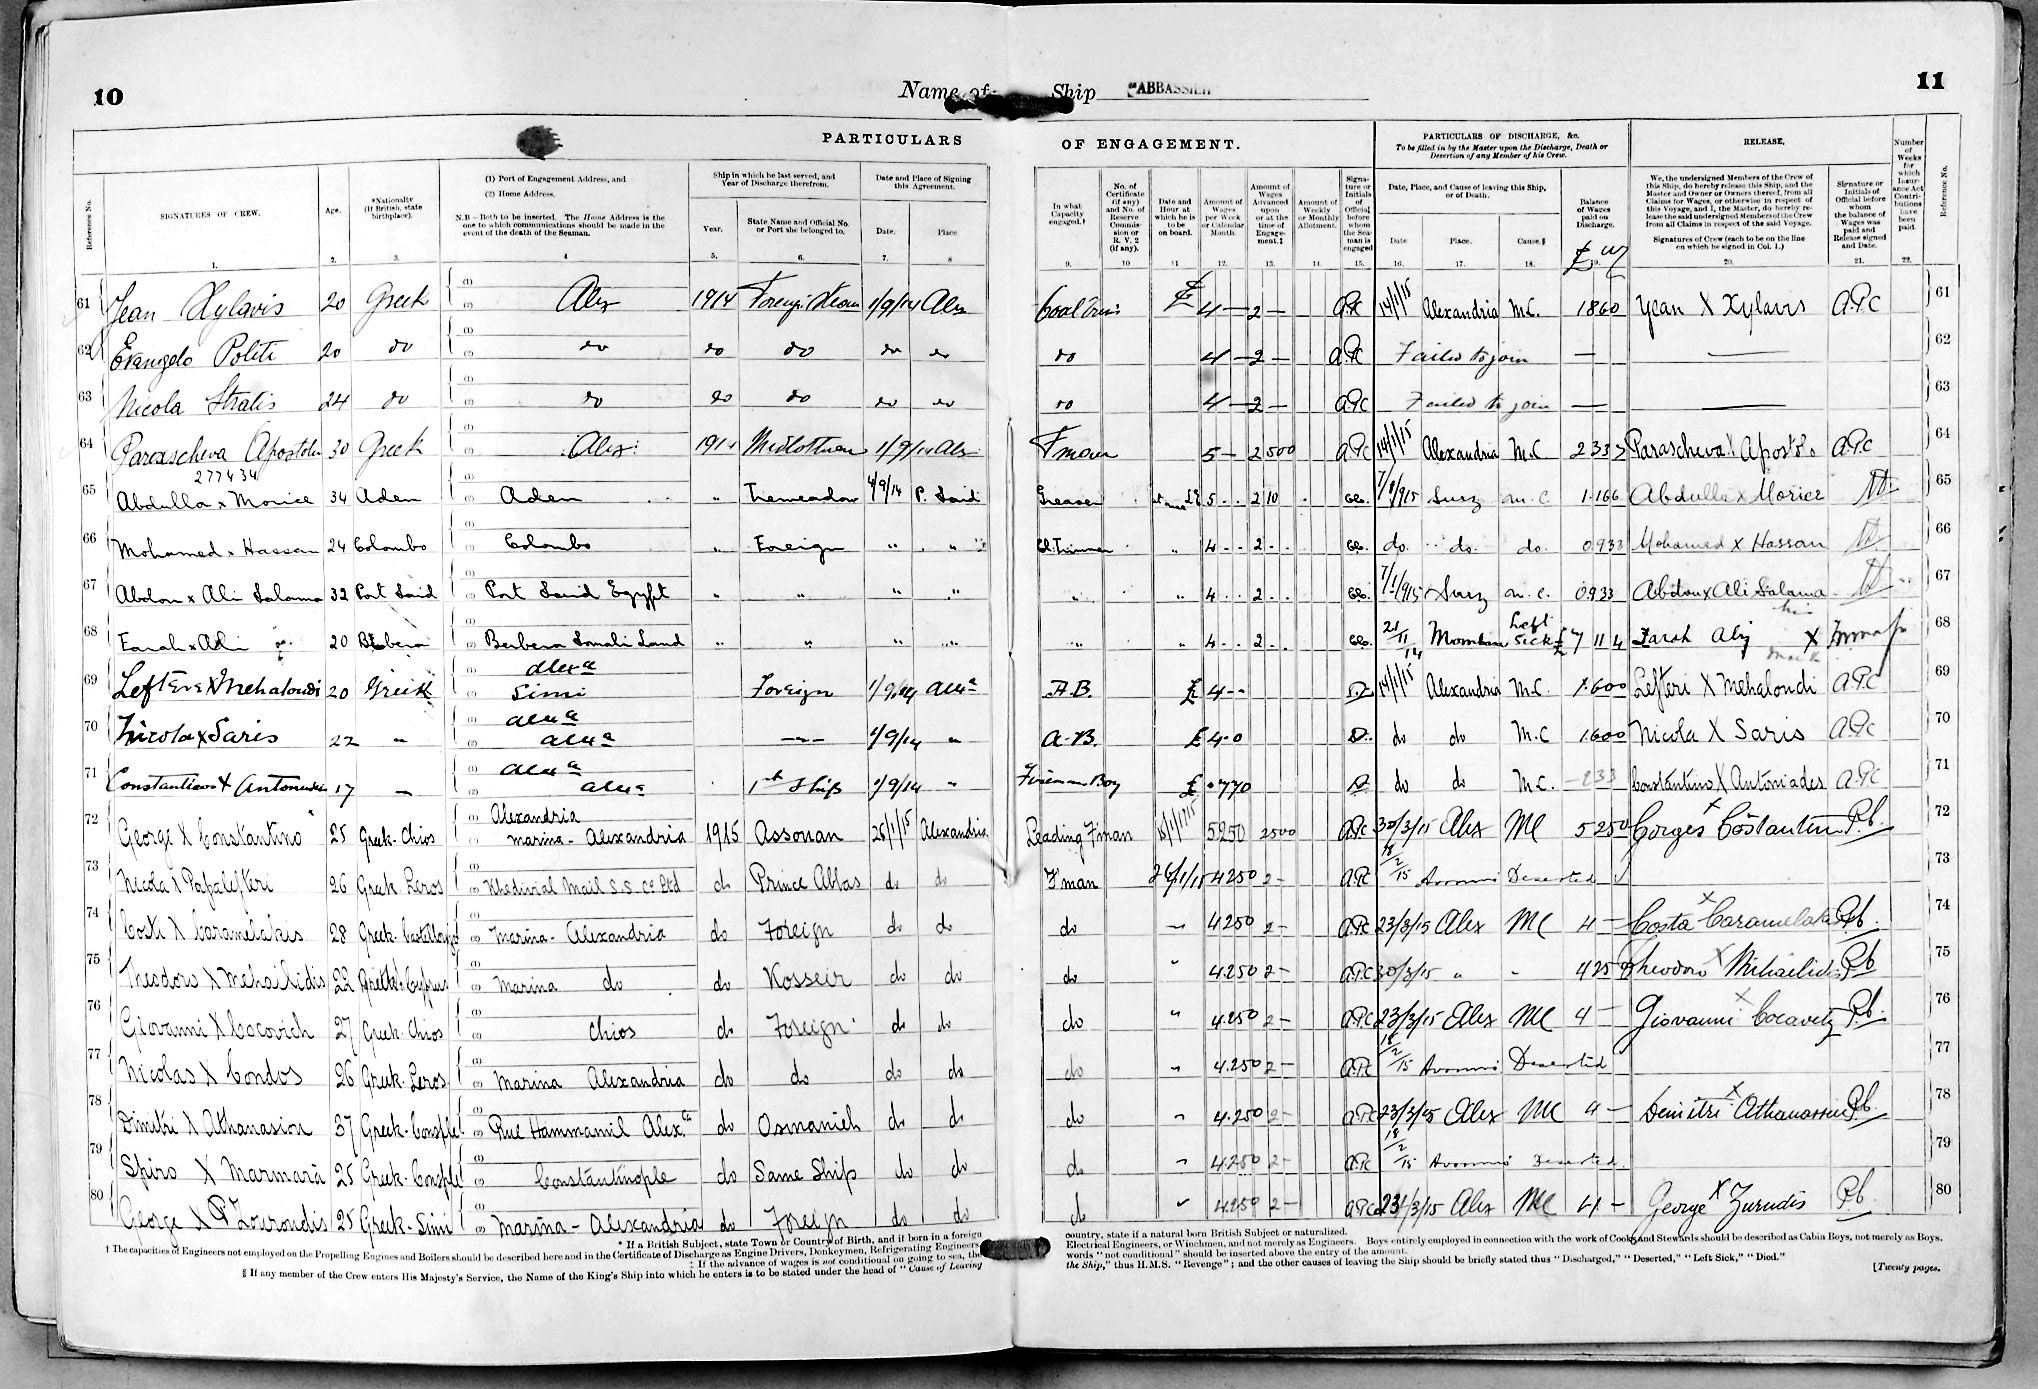 10
Name of Ship "ABBASSIEH"
11
PARTICULARS OF ENGAGEMENT.
PARTICULARS OF DISCHARGE, &c.
To be filled in by the Master upon the Discharge, Death or Desertion of any Member of his Crew.
RELEASE.
Reference No.
SIGNATURES OF CREW.
Age.
*Nationality (If British, state birthplace).
(1) Port of Engagement Address, and
(2) Home Address.
N.B.—Both to be inserted. The Home Address is the one to which communications should be made in the event of the death of the Seaman.
Ship in which he last served, and Year of Discharge therefrom.
Year.
State Name and Official No. or Port she belonged to.
Date and Place of Signing this Agreement.
Date.
Place
In what Capacity engaged.†
No. of Certificate (if any) and No. of Reserve Commission or R. V. 2 (if any).
Date and Hour at which he is to be on board.
Amount of Wages per Week or Calendar Month.
Amount of Wages Advanced upon or at the time of Engagement.‡
Amount of Weekly or Monthly Allotment.
Signature or Initials of Official before whom the Seaman is engaged
Date, Place, and Cause of leaving this Ship, or of Death.
Date
Place.
Cause.§
Balance of Wages paid on Discharge.
We, the undersigned Members of the Crew of this Ship, do hereby release this Ship, and the Master and Owner or Owners thereof, from all Claims for Wages, or otherwise in respect of this Voyage, and I, the Master, do hereby release the said undersigned Members of the Crew from all Claims in respect of the said Voyage.
Signatures of Crew (each to be on the line on which he signed in Col. 1.)
Signature or Initials of Official before whom the balance of Wages was paid and Release signed and Date.
Number of Weeks for which Insurance Act Contributions have been paid
Reference No.
1. 2. 3. 4 5. 6. 7. 8 9. 10 11 12. 13. 14. 15. 16. 17. 18. 19. 20. 21. 22.
61 Jean Xylavis 20 Greek Alex 1914 1/9/14 Alex £ 4 — 2 — A.P.C 14/1/15 Alexandria M.C. 1860 Jean X Xylavis A.P.C 61
62 Evangelo Politi 20 do do do do do do do 4 — 2 — A.P.C Failed to join — 62
63 Nicola Stratis 24 do do do do do do do 4 — 2 — A.P.C Failed to join — 63
64 Parascheva Apostolu 30 Greek Alex: 1914 Midlothian 1/9/14 Alex Fman 5 — 2 500 A.P.C 14/1/15 Alexandria M.C 2337 Parascheva X Aposto. A.P.C 64
277434
65 Abdulla x Morice 34 Aden Aden " Tremeadow 4/9/14 P. Said Greaser 5 . . 2 10 7/1/915 Suez m. c. 1.166 Abdulla x Morice 65
66 Mohamed x Hassan 24 Colombo Colombo " Foreign " " Cl. Trimmer " 4 . . 2 . do. do. do. 0.933 Mohamed x Hassan 66
67 Abdou x Ali Salama 32 Port Said Port Said Egypt " " " " " " 4 . . 2 . 7/1/915 Suez m. c. 0.933 Abdou x Ali Salama 67
68 Farah x Ali 20 Berbera Berbera Somali Land " " " " " " 4 . . 2 . . 21/11/14 Mombasa Left Sick £7 11 4 Farah Ali his X mark 68
69 Lefteri X Mehaloudi 20 Greek Alexa Simi Foreign 1/9/14 Alexa A.B. £ 4 - - 14/1/15 Alexandria M.C. 1.600 Lefteri X Mehaloudi A.P.C 69
70 Nicola X Saris 22 " Alexa Alexa —"— 1/9/14 " A-B. £ 4.0 do do M.C 1.600 Nicola X Saris A.P.C 70
71 Constantinos X Antoniades 17 " Alexa Alexa 1st Ship 1/9/14 " Fireman Boy £ .770 do do M.C. — 233 Constantino X Antoniades A.P.C 71
72 George X Constantino 25 Greek-Chios Alexandria Marina - Alexandria 1915 Assouan 25/1/15 Alexandria Leading Fman 5250 2500 A.P.C 30/3/15 Alex MC 5250 Gorges X Costantin P.b. 72
73 Nicola X Papalefteri 26 Greek Leros Khedivial Mail S.S. Co Ltd do Prince Abbas do do Fman 26/1/15 4250 2 - A.P.C 18/2/15 Deserted 73
74 Costi X Caramelakis 28 Marina - Alexandria do Foreign do do do " 4250 2 - A.P.C 23/3/15 Alex MC 4 — Costa X Caramelakis P.b. 74
75 Theodoro X Mehailidis 22 Marina do do Kosseir do do do " 4.250 2 - A.P.C 30/3/15 " " 4250 Theodoro X Mihailidis P.b 75
76 Giovanni X Cocovich 27 Greek-Chios Chios do Foreign do do do " 4.250 2 - A.P.C 23/3/15 Alex MC 4 — Giovanni X Cocavitz P.b. 76
77 Nicolas X Condos 26 Greek-Leros Marina Alexandria do do do do do " 4.250 2 - A.P.C 18/2/15 Deserted 77
78 Dimitri X Athanasion 37 Greek-Consple Rue Hammamil Alexa do Osmanieh do do do " 4.250 2 - A.P.C 23/3/15 Alex MC 4 — Demitri X Athanassiu P.b. 78
79 Spiro X Marmara 25 Greek-Consple Constantinople do Same Ship do do do " 4.250 2 - A.P.C 18/2/15 Deserted. 79
80 George X P Zouroudis 25 Greek-Simi Marina - Alexandria do Foreign do do do " 4.250 2 - A.P.C 23/3/15 Alex MC 4 — George X Zurudis P.b. 80
* If a British Subject, state Town or Country of Birth, and if born in a foreign country, state if a natural born British Subject or naturalized.
† The capacities of Engineers not employed on the Propelling Engines and Boilers should be described here and in the Certificate of Discharge as Engine Drivers, Donkeymen, Refrigerating Engineers, Electrical Engineers, or Winchmen, and not merely as Engineers. Boys entirely employed in connection with the work of Cooks and Stewards should be described as Cabin Boys, not merely as Boys.
‡ If the advance of wages is not conditional on going to sea, the words "not conditional" should be inserted above the entry of the amount.
§ If any member of the Crew enters His Majesty's Service, the Name of the King's Ship into which he enters is to be stated under the head of "Cause of Leaving the Ship," thus H.M.S. "Revenge"; and the other causes of leaving the Ship should be briefly stated thus "Discharged," "Deserted," "Left Sick," "Died."
[Twenty pages.